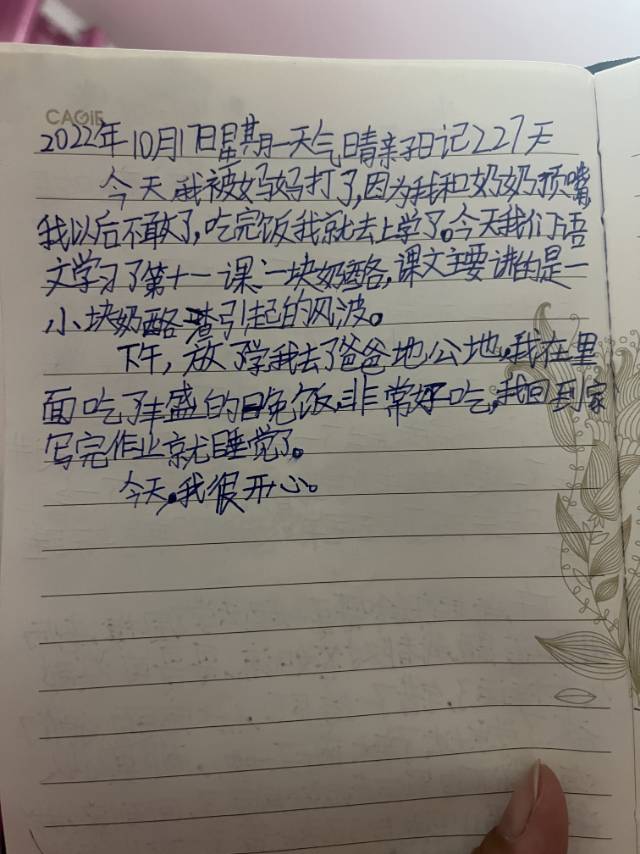 CAGIE
2022年10月17日星期一天气晴亲子日记227天
今天我被妈妈打了,因为我和奶奶顶嘴,
我以后不敢了,吃完饭我就去上学了。今天我们下语
文学习了第十一课:一块奶酪,课文主要讲的是一
小块奶酪渣引起的风波。
下午,放了学我去了爸爸地公地,我在里
面吃了丰盛的晚饭,非常好吃,我回到家
写完作业就睡觉了。
今天,我很开心。